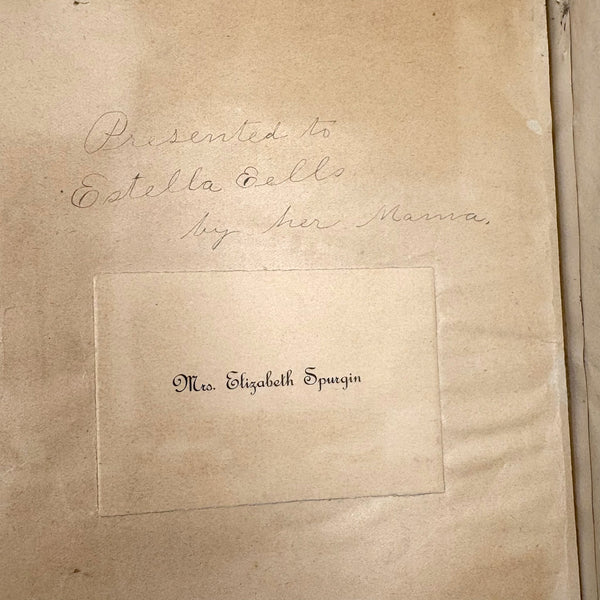 Presented to
Estella Eells
by her Mama.
Mrs. Elizabeth Spurgin